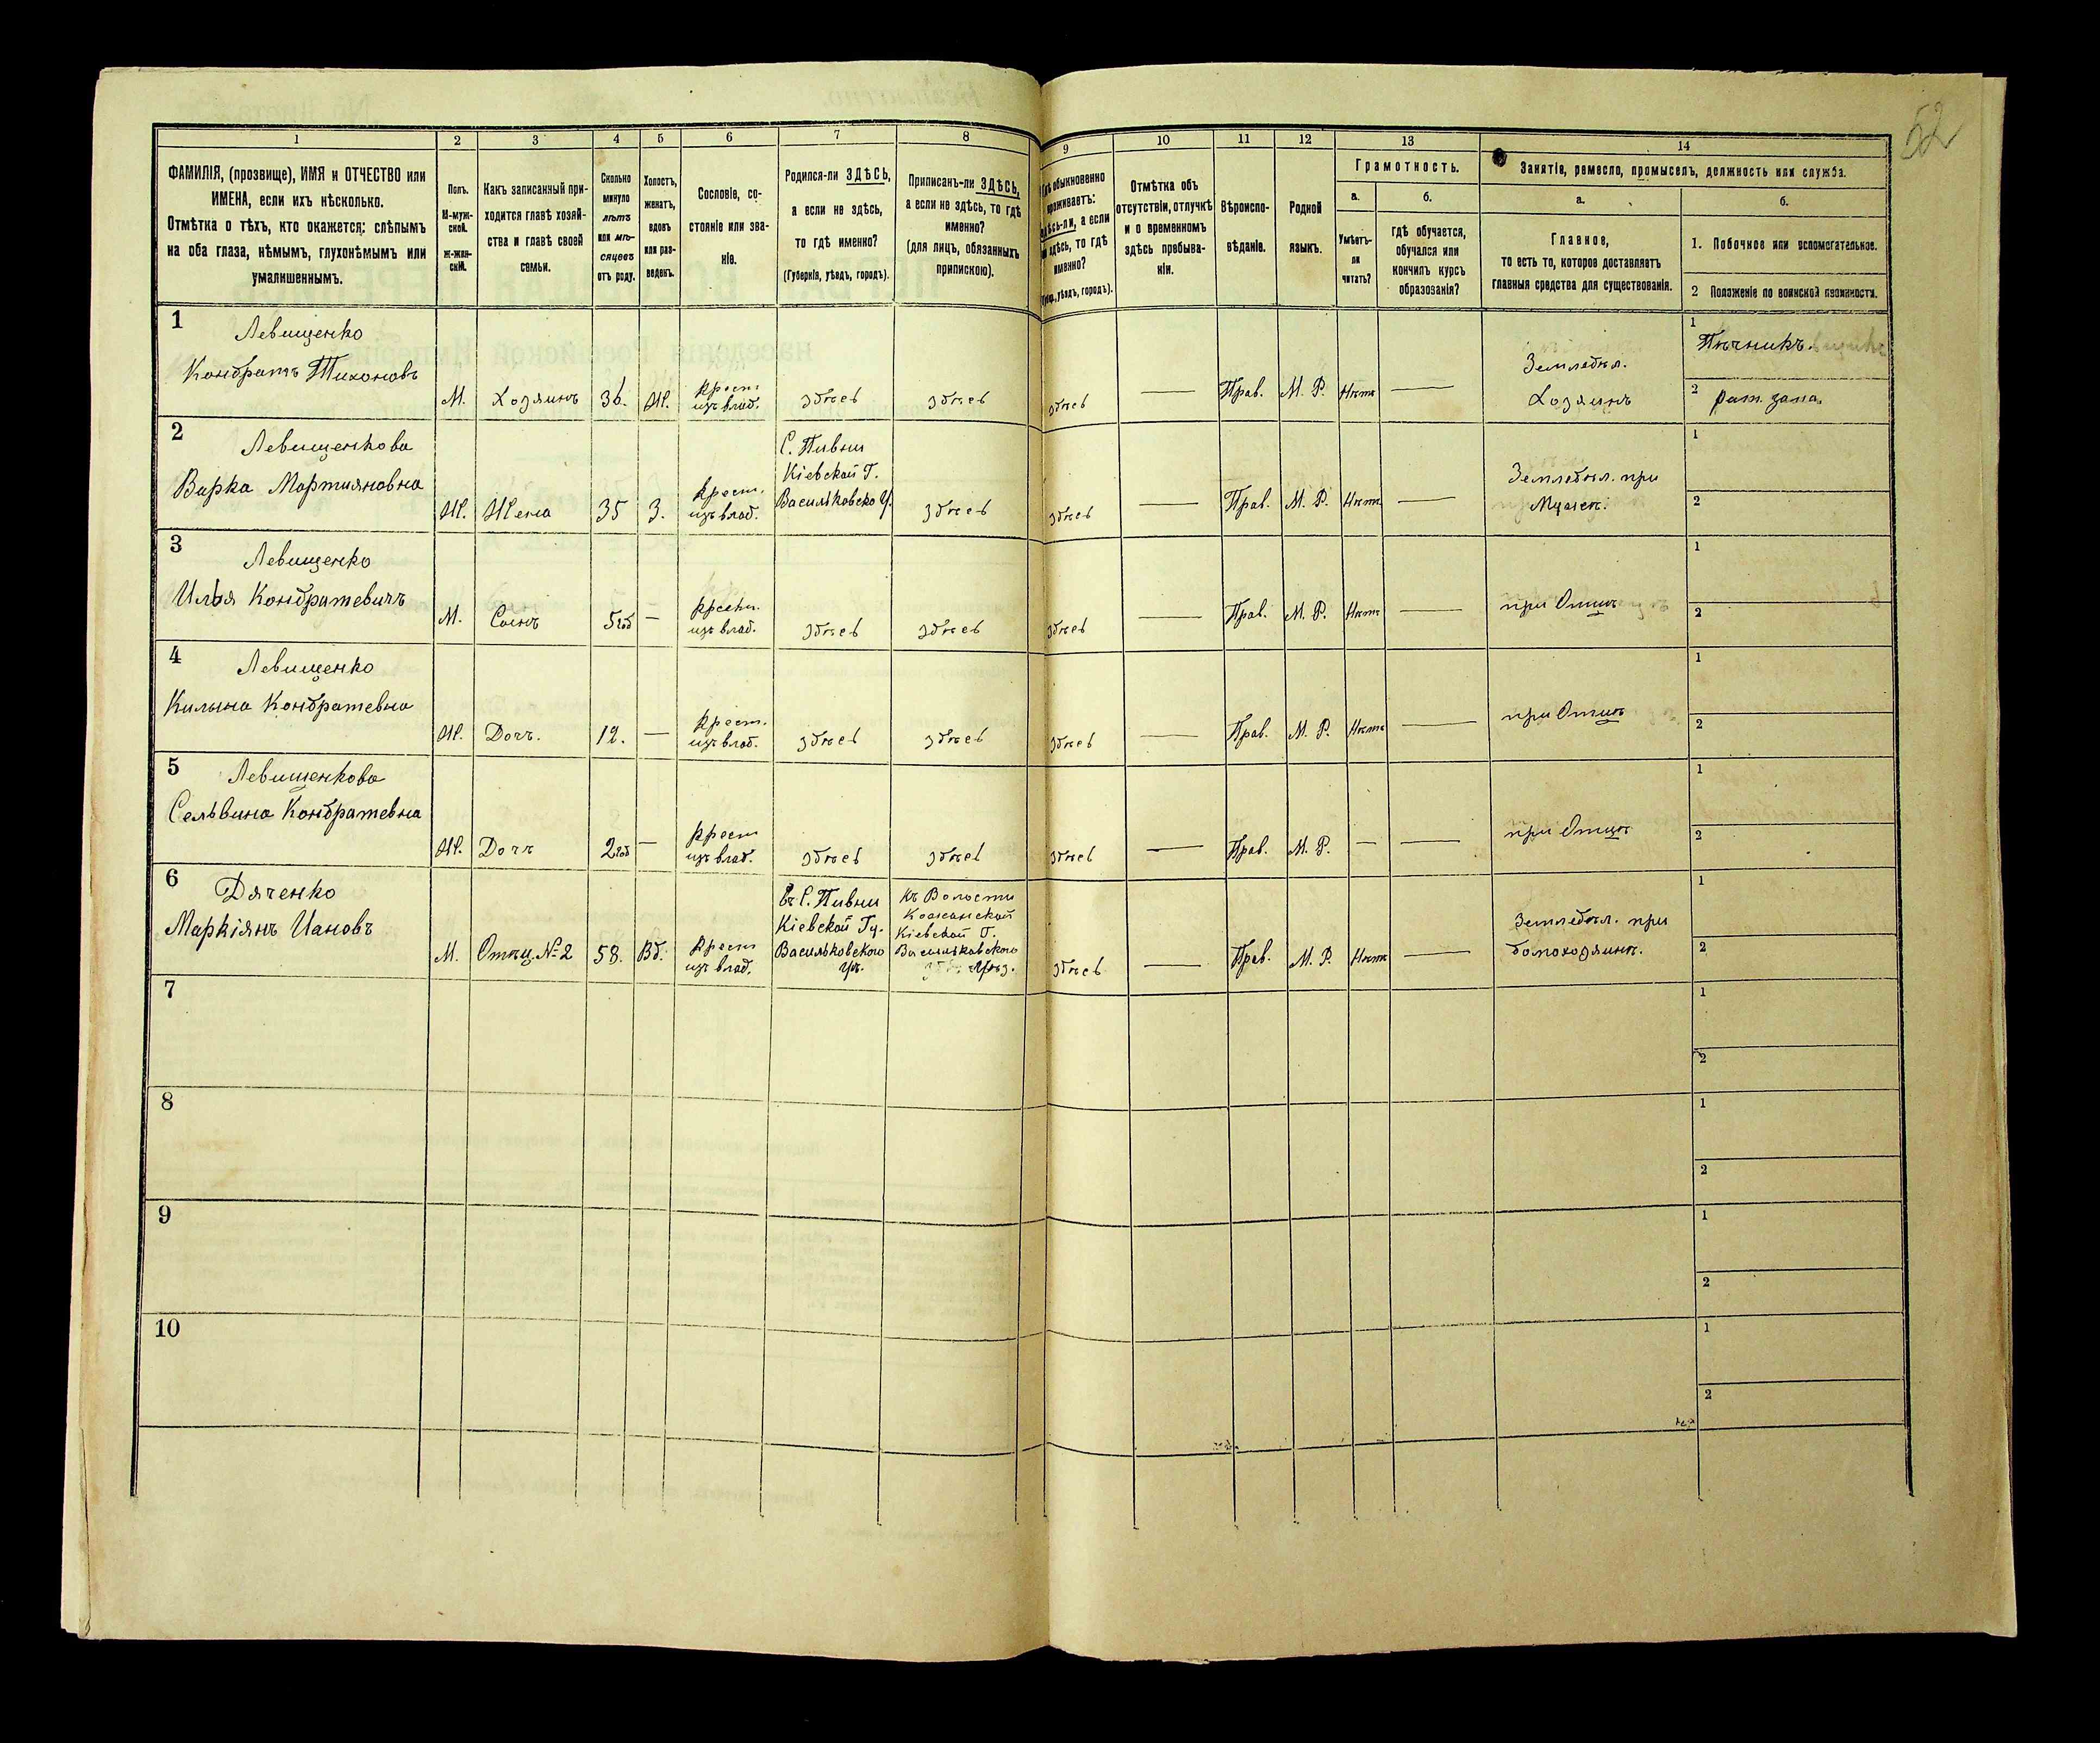 52
1
2
3
4
5
6
7
8
9
10
11
12
13
14
ФАМИЛІЯ, (прозвище), ИМЯ и ОТЧЕСТВО или
ИМЕНА, если ихъ нѣсколько.
Отмѣтка о тѣхъ, кто окажется: слѣпымъ
на оба глаза, нѣмымъ, глухонѣмымъ или
умалишеннымъ.
Полъ.
М-муж-
ской.
Ж-жен-
скій.
Какъ записанный при-
ходится главѣ хозяй-
ства и главѣ своей
семьи.
Сколько
минуло
лѣтъ
или мѣ-
сяцевъ
отъ роду.
Холостъ,
женатъ,
вдовъ
или раз-
веденъ.
Сословіе, со-
стояніе или зва-
ніе.
Родился-ли ЗДѢСЬ,
а если не здѣсь,
то гдѣ именно?
(Губернія, уѣздъ, городъ).
Приписанъ-ли ЗДѢСЬ,
а если не здѣсь, то гдѣ
именно?
(для лицъ, обязанныхъ
припискою).
обыкновенно
проживаетъ:
здѣсь-ли, а если
не здѣсь, то гдѣ
именно?
уѣздъ, городъ).
Отмѣтка объ
отсутствіи, отлучкѣ
и о временномъ
здѣсь пребыва-
ніи.
Вѣроиспо-
вѣданіе.
Родной
языкъ.
Грамотность.
а.
б.
Умѣетъ-
ли
читать?
гдѣ обучается,
обучался или
кончилъ курсъ
образованія?
Занятіе, ремесло, промыселъ, должность или служба.
а.
б.
Главное,
то есть то, которое доставляетъ
главныя средства для существованія.
1. Побочное или вспомогательное.
2 Положеніе по воинской повинности.
1
Левищенко
Кондратъ Тихоновъ
М.
Хозяинъ
36.
Ж.
Крест
изъ влад.
здѣсь
здѣсь
здѣсь
—
Прав.
М. Р.
Нѣтъ
—
Земледѣл.
Хозяинъ
1
Пѣчникъ.
2
рат. запа.
2
Левищенкова
Варка Мартияновна
Ж.
Жена
35
З.
Крест.
изъ влад.
С. Пивни
Кіевской Г.
Васильковско У.
здѣсь
здѣсь
—
Прав.
М. Р.
Нѣтъ
—
Земледѣл. при
Мужѣ.
1
2
3
Левищенко
Илья Кондратевичъ
М.
Сынъ
5 год
—
Крестн.
изъ влад.
здѣсь
здѣсь
здѣсь
—
Прав.
М. Р.
Нѣтъ
—
при Отцѣ
1
2
4
Левищенко
Килына Кондратевна
Ж.
Дочъ.
12.
—
Крест.
изъ влад.
здѣсь
здѣсь
здѣсь
—
Прав.
М. Р.
Нѣтъ
—
при Отцѣ
1
2
5
Левищенкова
Сельвина Кондратевна
Ж.
Дочъ
2 год
—
Крест
изъ влад.
здѣсь
здѣсь
здѣсь
—
Прав.
М. Р.
—
—
при Отцѣ
1
2
6
Дяченко
Маркіянъ Ивановъ
М.
Отец. №2
58.
Вд.
Крест
изъ влад.
въ С. Пивни
Кіевской Гу.
Васильковского
Уѣ.
къ Волости
Кожанской
Кіевской Г.
Васильковского
Уѣз.
здѣсь
—
Прав.
М. Р.
Нѣтъ
—
Земледѣл. при
домохозяинѣ.
1
2
7
1
2
8
1
2
9
1
2
10
1
2